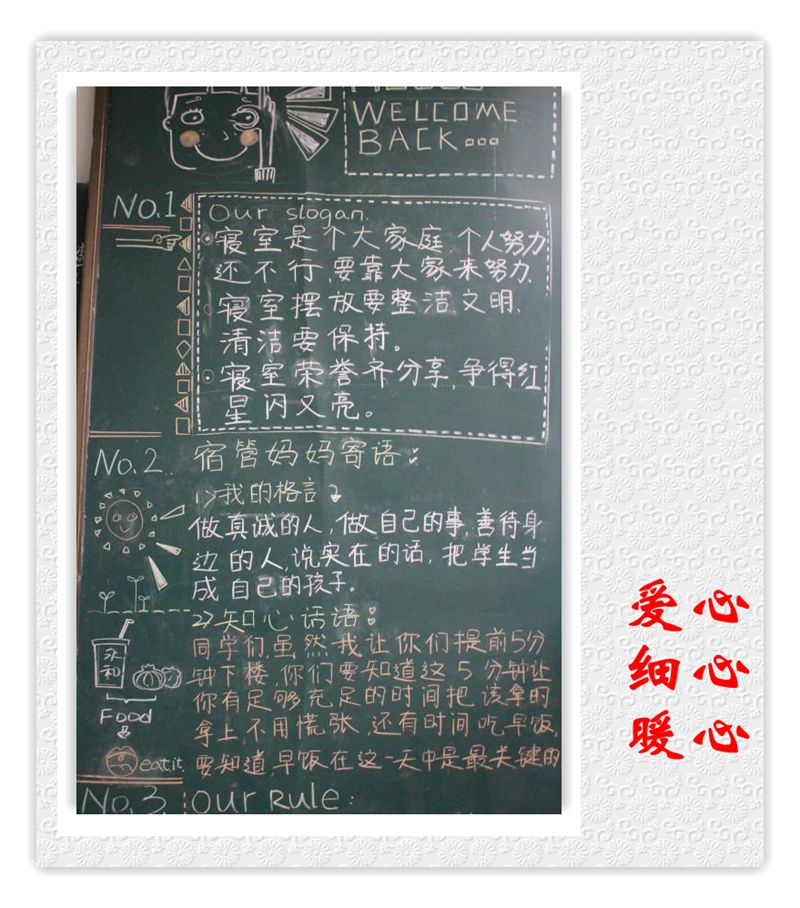 WELLCOME
BACK...
No.1
Our slogan.
寝室是个大家庭,个人努力
还不行,要靠大家来努力.
寝室摆放要整洁文明、
清洁要保持。
寝室荣誉齐分享,争得红
星闪又亮。
No.2.
宿管妈妈寄语:
1>我的格言
做真诚的人,做自己的事,善待身
边的人,说实在的话,把学生当
成自己的孩子。
2>知心话语:
同学们,虽然我让你们提前5分
钟下楼,你们要知道这5分钟让
你有足够充足的时间把该拿的
拿上,不用慌张,还有时间吃早饭,
要知道,早饭在这一天中是最关键的
永和
Food
eat it
No.3.
our Rule:
爱心
细心
暖心